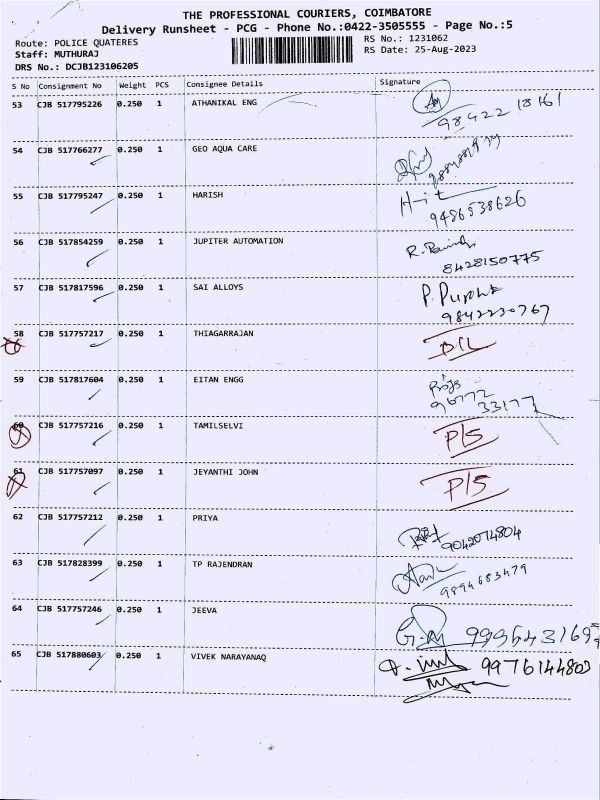 THE PROFESSIONAL COURIERS, COIMBATORE
Delivery Runsheet - PCG - Phone No.:0422-3505555 - Page No.:5
Route: POLICE QUATERES RS No.: 1231062
Staff: MUTHURAJ RS Date: 25-Aug-2023
DRS No.: DCJB123106205
S No Consignment No Weight PCS Consignee Details Signature
53 CJB 517795226 0.250 1 ATHANIKAL ENG
98422 18161
54 CJB 517766277 0.250 1 GEO AQUA CARE
55 CJB 517795247 0.250 1 HARISH
9486538626
56 CJB 517854259 0.250 1 JUPITER AUTOMATION
8428150775
57 CJB 517817596 0.250 1 SAI ALLOYS
9842230767
58 CJB 517757217 0.250 1 THIAGARRAJAN D/L
59 CJB 517817604 0.250 1 EITAN ENGG
96772
33177
60 CJB 517757216 0.250 1 TAMILSELVI P/S
61 CJB 517757097 0.250 1 JEYANTHI JOHN P/S
62 CJB 517757212 0.250 1 PRIYA
9042074804
63 CJB 517828399 0.250 1 TP RAJENDRAN
9894683479
64 CJB 517757246 0.250 1 JEEVA
65 CJB 517880603 0.250 1 VIVEK NARAYANAQ
9976144803